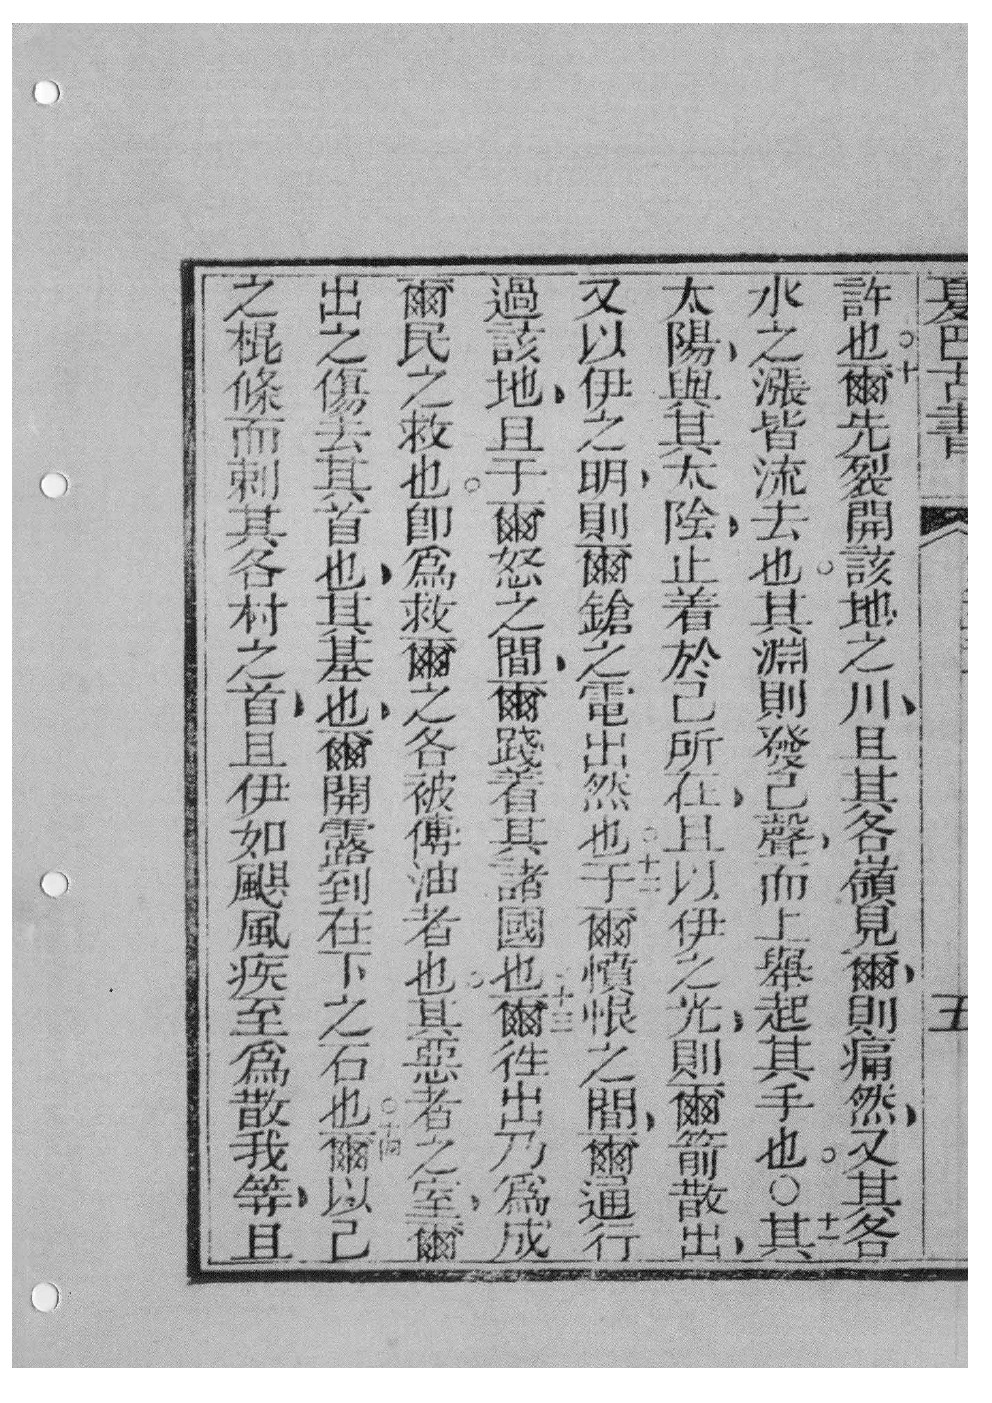 夏巴古書 五
許也。十爾先裂開該地之川、且其各嶺見爾、則痛然、又其各
水之漲皆流去也。其淵則發己聲、而上舉起其手也。〇十一其
太陽、與其太陰、止着於己所在、且以伊之光、則爾箭散出、
又以伊之明、則爾鎗之電出然也。十二于爾憤恨之間、爾通行
過該地、且于爾怒之間、爾踐着其諸國也。十三爾徃出乃為成
爾民之救也。即為救爾之各被傅油者也。其惡者之室、爾
出之傷去其首也、其基也、爾開露到在下之石也。十四爾以己
之棍條而刺其各村之首、且伊如颶風疾至為散我等、且